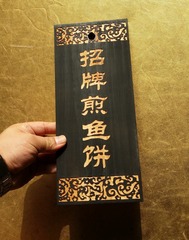 招牌煎鱼饼